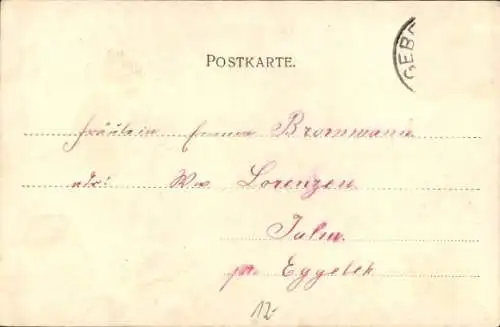 POSTKARTE.
GEBO
Fräulein Emma Brommann
adr: Ww Lorenzen
Jalm
pr. Eggebek
12-